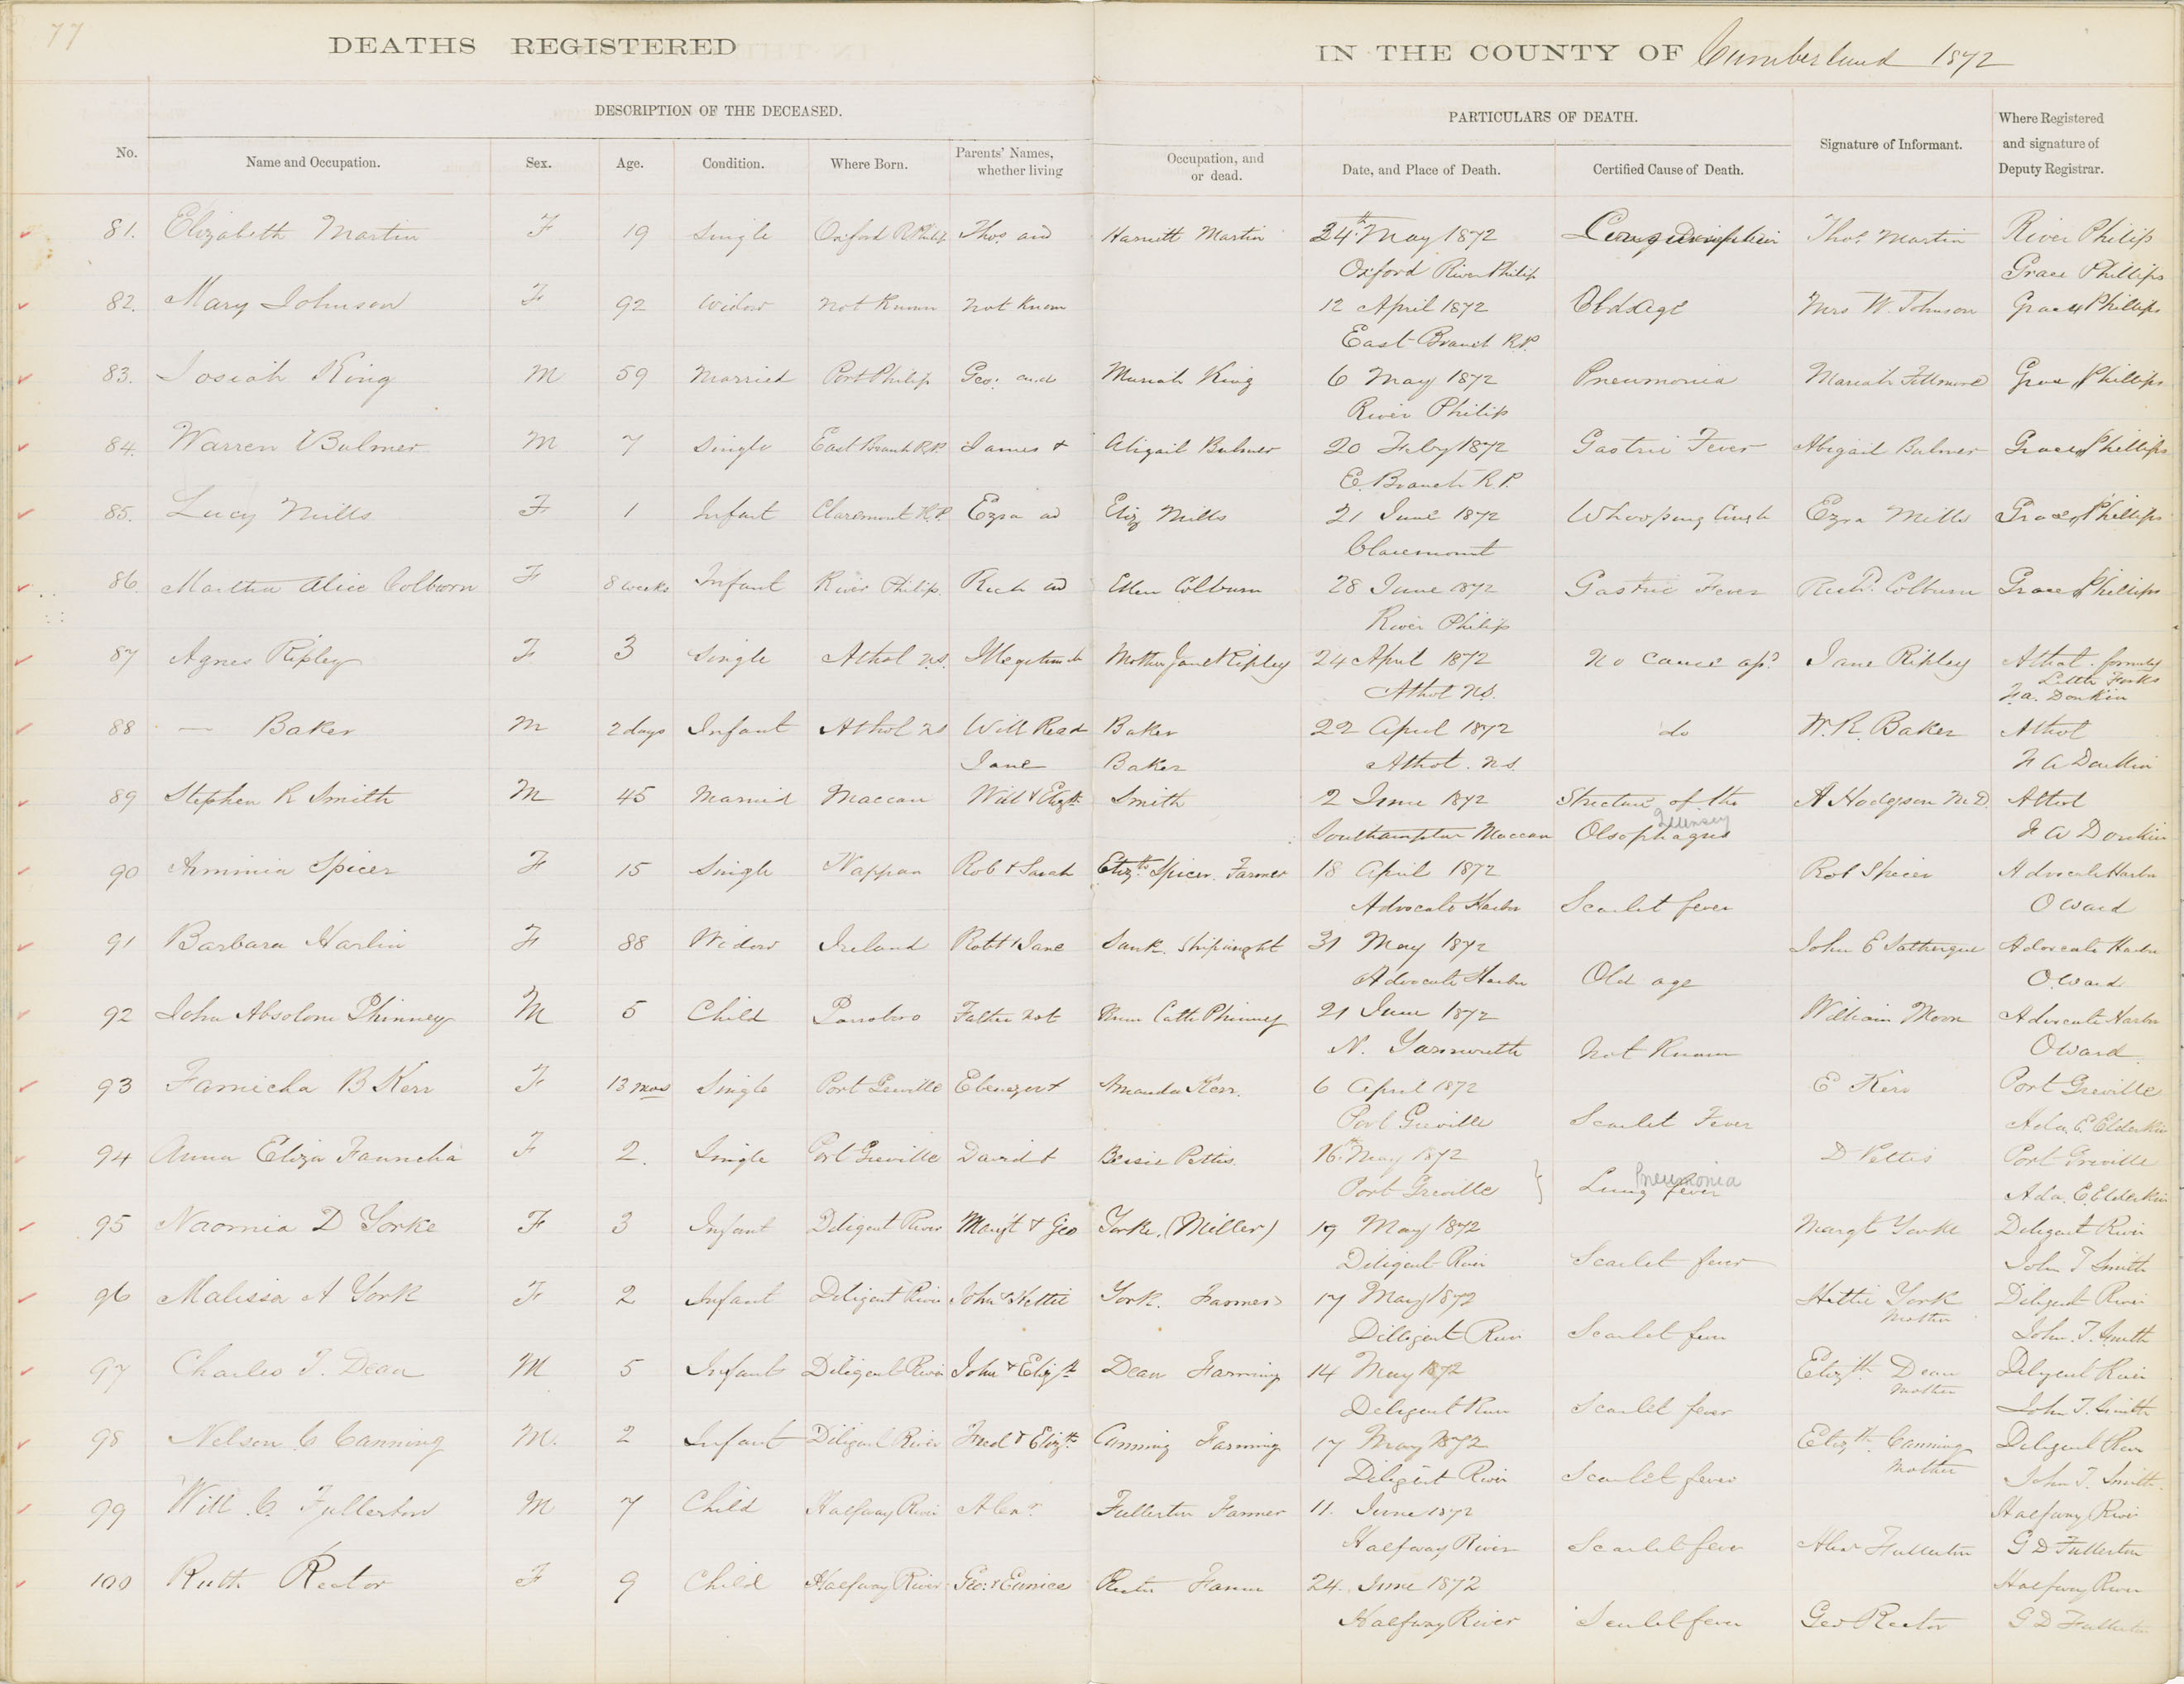 77
DEATHS REGISTERED IN THE COUNTY OF Cumberland 1872
DESCRIPTION OF THE DECEASED. PARTICULARS OF DEATH.
No. Name and Occupation. Sex. Age. Condition. Where Born. Parents' Names, whether living Occupation, and or dead. Date, and Place of Death. Certified Cause of Death. Signature of Informant. Where Registered and signature of Deputy Registrar.
81. Elizabeth Martin F 19 Single Oxford R Philip Thos. and Harriett Martin 24th May 1872 Thos. Martin River Philip
Oxford River Philip Grace Phillips
82. Mary Johnson F 92 Widow Not Known Not Known 12 April 1872 Old Age Mrs W. Johnson Grace Phillips
East Branch R.P.
83. Josiah King M 59 Married Port Philip Geo: and Mariah King 6 May 1872 Pneumonia Mariah Fillmore Grace Phillips
River Philip
84. Warren Bulmer M 7 Single East Branch R.P. James & Abigail Bulmer 20 Feby 1872 Gastric Fever Abigail Bulmer Grace Phillips
E. Branch R.P.
85. Lucy Mills F 1 Infant Claremont R.P. Ezra ad Eliz Mills 21 June 1872 Whooping Cough Ezra Mills Grace Phillips
Claremount
86. Martha Alice Colborn F 8 weeks Infant River Philip. Rich ad Ellen Colburn 28 June 1872 Gastric Fever Richd. Colburn Grace Phillips
River Philip
87 Agnes Ripley F 3 Single Athol N.S. Illegitimate Mother Janet Ripley 24 April 1872 No cause apd Jane Ripley Athol. formerly
Little Forks
Athol N.S. F.A. Donkin
88 — Baker M 2 days Infant Athol NS Will Read Baker 22 April 1872 do W. R. Baker Athol
Jane Baker Athol. N.S. F A Donkin
89 Stephen R Smith M 45 Married Maccan Will & Elizth Smith 2 June 1872 Stricture of the A Hodgson M.D Athol
Southampton Maccan Olsophagus F A Donkin
90 Arminia Spicer F 15 Single Nappan Rob & Sarah Elizth Spicer. Farmer 18 April 1872 Rob Spicer Advocate Harbr
Advocate Harbr Scarlet fever O Ward
91 Barbara Harlin F 88 Widow Ireland Robt & Jane 31 May 1872 Advocate Harbr
Advocate Harbr Old age O. Ward
92 John Absolom Phinney M 5 Child Parrsboro Father not Cathe Phinney 21 June 1872 William Moon Advocate Harbr
N. Yarmouth Not Known O Ward
93 Famicha B Kerr F 13 mos Single Port Greville Ebenezer & Amanda Kerr. 6 April 1872 E Kerr Port Greville
Port Greville Scarlet Fever Ada. E. Elderkin
94 Anna Eliza Faunchia F 2. Single Port Greville David & Bessie Pettis. 16th May 1872 D Pettis Port Greville
Port Greville } Lung fever Pneumonia Ada. E. Elderkin
95 Naomia D Yorke F 3 Infant Diligent River Margt & Geo Yorke. (Miller) 19 May 1872 Margt Yorke Diligent River
Diligent River Scarlet fever John T Smith
96 Malissa A York F 2 Infant Diligent River John & Hettie York. Farmer 17 May 1872 Hettie York Diligent River
Mother
Dilligent River Scarlet fever John. T. Smith
97 Charles T. Dean M 5 Infant Diligent River John & Elizth Dean Farming 14 May 1872 Elizth Dean Diligent River
Mother
Diligent River Scarlet fever John T. Smith
98 Nelson C Canning M. 2 Infant Diligent River Fred & Elizth Canning Farming 17 May 1872 Elizth Canning Diligent River
Mother
Diligent River Scarlet fever John T. Smith.
99 Will. C. Fullerton M 7 Child Halfway River Alexr Fullerton Farmer 11. June 1872 Halfway River
Halfway River Scarlet fever Alexr Fullerton G D Fullerton
100 Ruth Rector F 9 Child Halfway River Geo: & Eunice Rector Farmer 24. June 1872 Halfway River
Halfway River Scarlet fever Geo Rector G D Fullerton